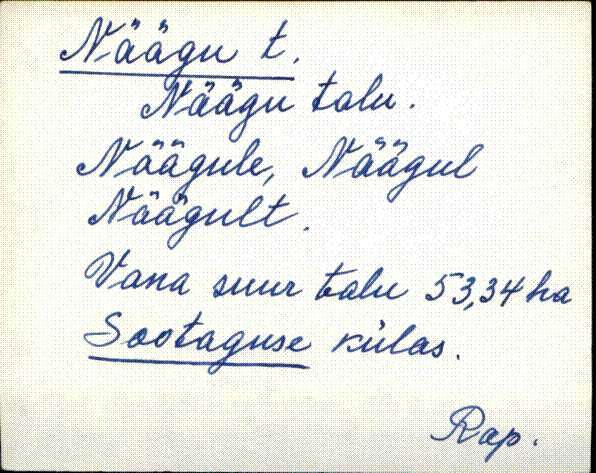 Näägu t.
Näägu talu.
Näägule, Näägul
Näägult.
Vana suur talu 53,34 ha
Sootaguse külas.
Rap.